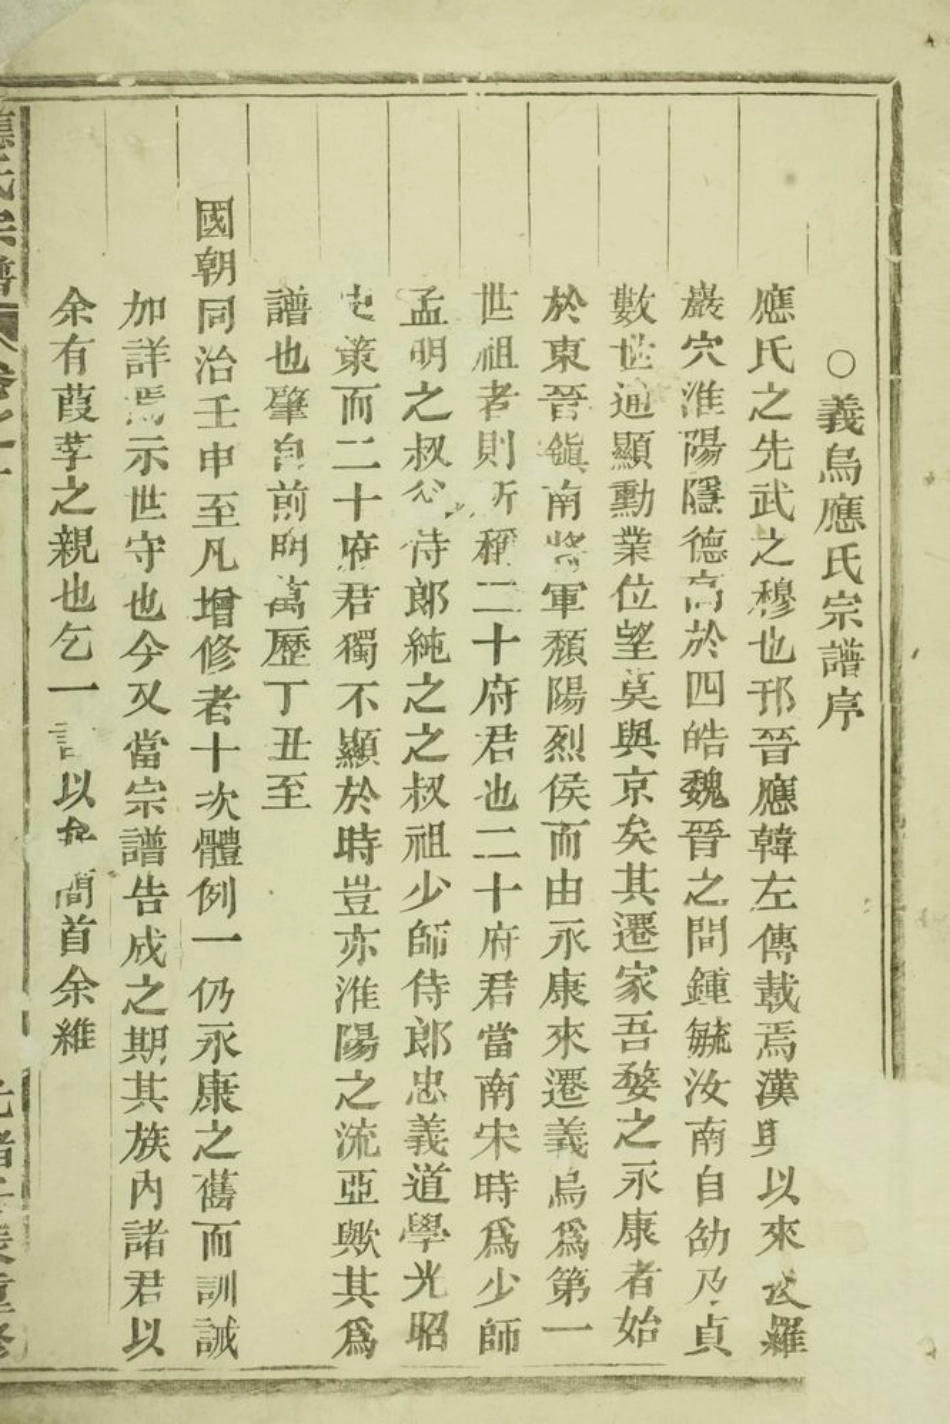 ○義烏應氏宗譜序
應氏之先武之穆也邘晉應韓左傳載焉漢興以來 羅
巖穴淮陽隱德高於四皓魏晉之間鍾毓汝南自劭乃貞
數世通顯勳業位望莫與京矣其遷家吾婺之永康者始
於東晉鎭南將軍頽陽烈侯而由永康來遷義烏爲第一
世祖者則所稱二十府君也二十府君當南宋時爲少師
孟明之叔公侍郎純之之叔祖少師侍郎忠義道學光昭
史策而二十府君獨不顯於時豈亦淮陽之流亞歟其爲
譜也肇自前明萬歷丁丑至
國朝同治壬申至凡增修者十次體例一仍永康之舊而訓誡
加詳焉示世守也今又當宗譜告成之期其族內諸君以
余有葭莩之親也乞一言以弁簡首余維
應氏宗譜 卷之一 光緒 重修